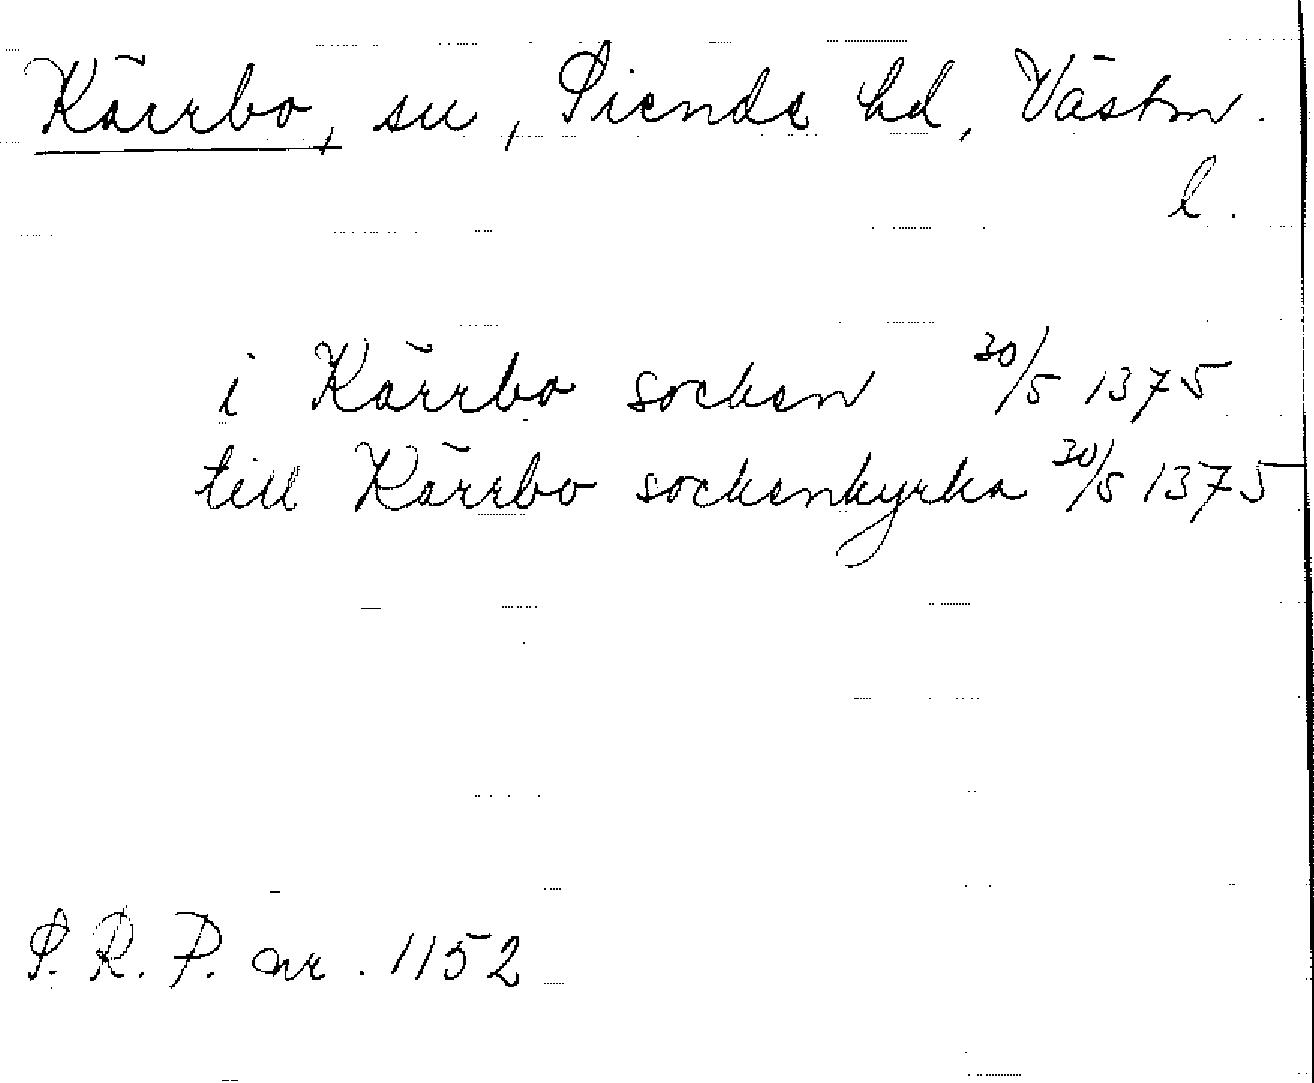 Kärrbo, sn, Siende hd, Västm.
l.
i Kärrbo socken 30/5 1375
till Kärrbo sockenkyrka 30/5 1375
S. R. P. nr. 1152